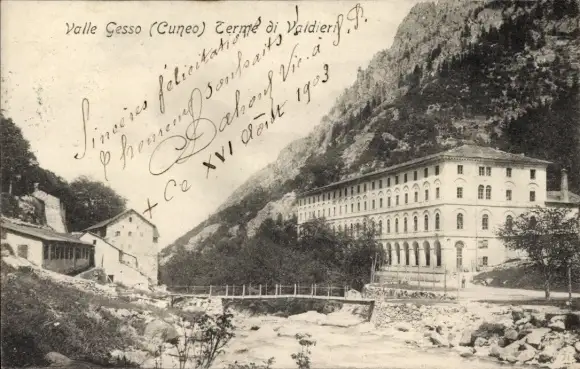 Valle Gesso (Cuneo) Terme di Valdieri
Sincères félicitations
& heureux souhaits !
XVI Août 1903